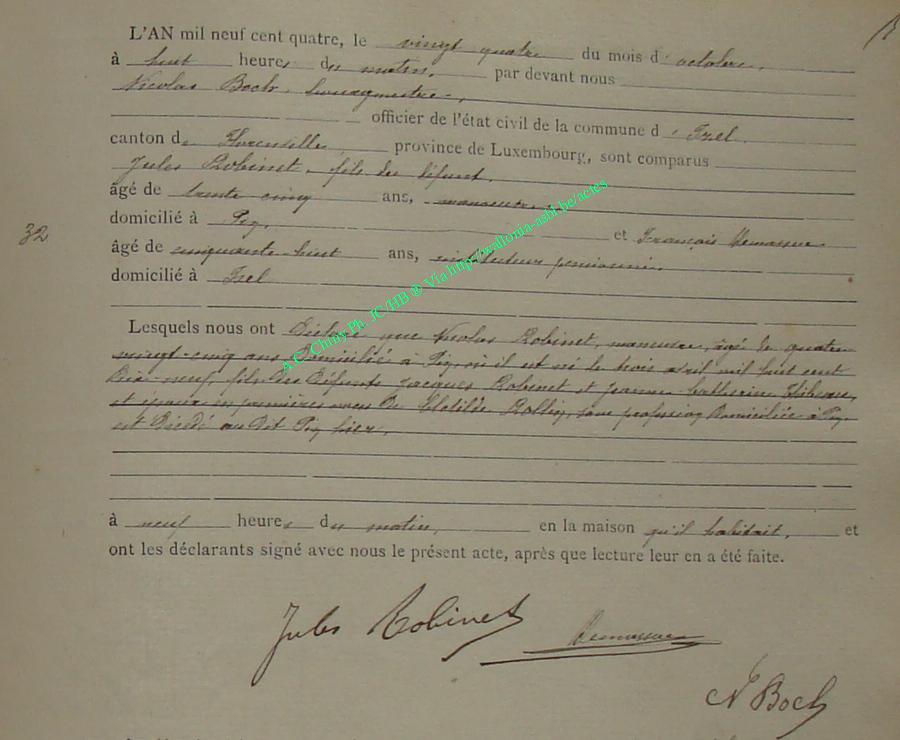 L'AN mil neuf cent quatre, le vingt quatre du mois d'octobre,
à huit heures du matin, par devant nous
Nicolas Boch, bourgmestre,
officier de l'état civil de la commune d'Izel
canton de Florenville, province de Luxembourg, sont comparus
Jules Robinet, fils du défunt,
âgé de trente cinq ans, manœuvre,
domicilié à Pin, et François
âgé de cinquante-huit ans, instituteur pensionné
domicilié à Izel
32
Lesquels nous ont déclaré que Nicolas Robinet, manœuvre, âgé de quatre
vingt-cinq ans domicilié à Pin, où il est né le trois avril mil huit cent
dix-neuf, fils des défunts Jacques Robinet et Jeanne Catherine
et époux en premières noces de Clotilde sans profession domiciliée à Pin,
est décédé au dit Pin hier,
à neuf heures du matin, en la maison qu'il habitait, et
ont les déclarants signé avec nous le présent acte, après que lecture leur en a été faite.
Jules Robinet
N Boch
A.C. Chiny Ph. JC/HB ® Via http://wallonia-asbl.be/actes